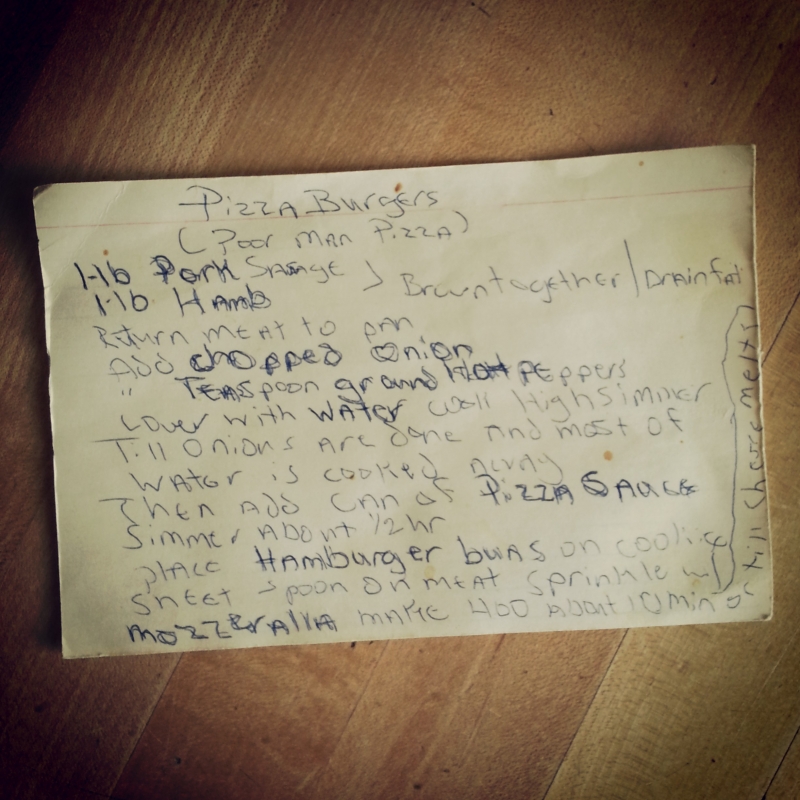 Pizza Burgers
(Poor Man Pizza)
1-lb Pork Sasage > Brown together / Drain fat
1-lb Hamb
Return meat to pan
Add chopped onion
" Teaspoon ground Hot peppers
cover with water High Simmer
Till onions are done and most of
water is cooked away
Then add can of Pizza Sauce
Simmer about 1/2 hr
place Hamburger buns on cookie
sheet spoon on meat sprinkle w/
mozzeralla 400 about 10 min or
till cheese melts)